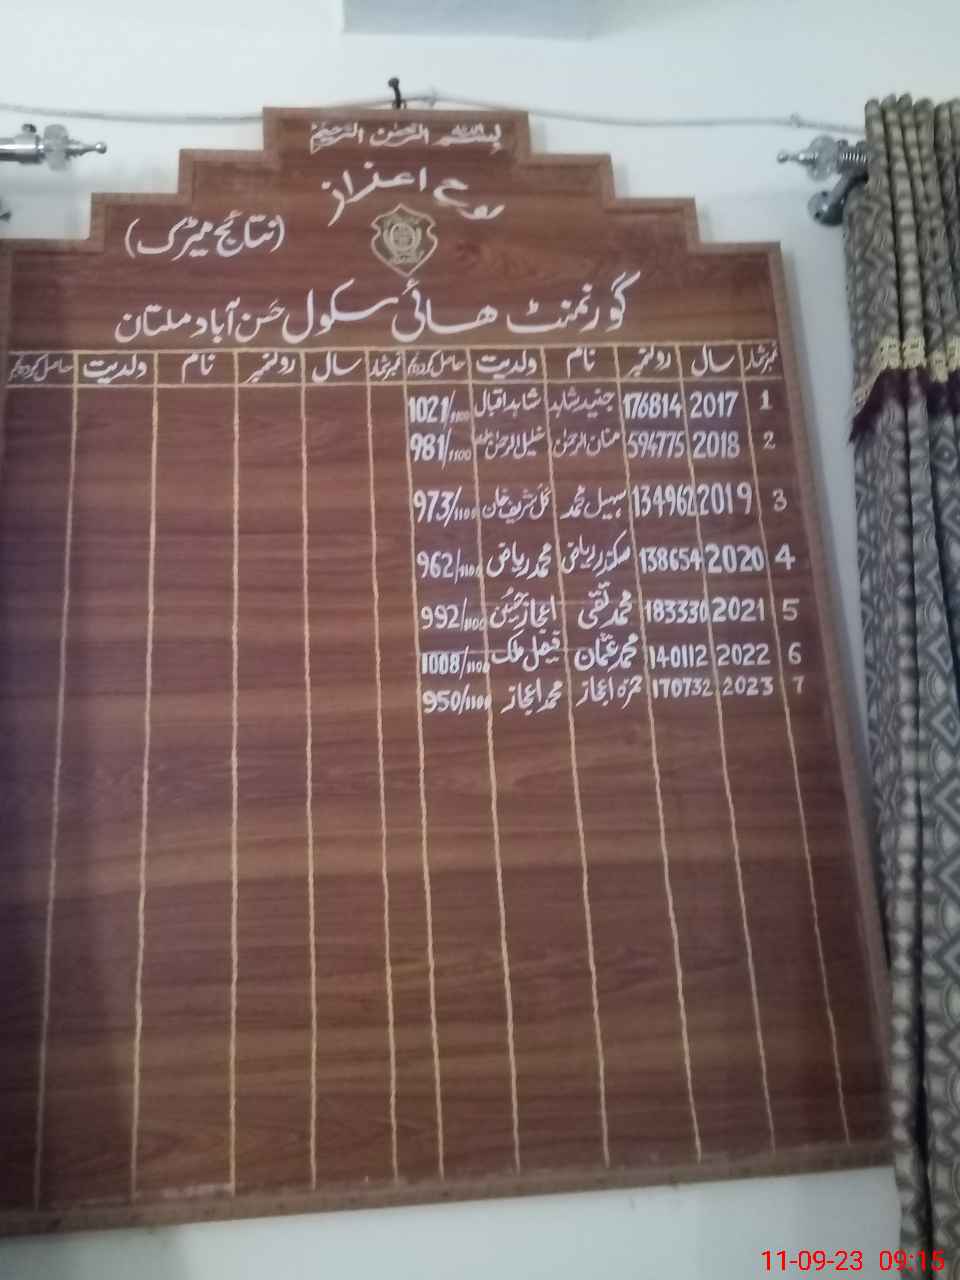 بسم اللہ الرحمٰن الرحیم
لوح اعزاز
(نتائج میٹرک)
گورنمنٹ ھائی سکول حسن آباد ملتان
نمبر شمار سال رولنمبر نام ولدیت حاصل کردہ نمبر نمبر شمار سال رولنمبر نام ولدیت حاصل کردہ نمبر
1 2017 176814 جنید شاہد شاہد اقبال 1021/1100
2 2018 594775 منان الرحمٰن خلیل الرحمٰن 981/1100
3 2019 134962 سہیل محمد گل شریف خان 973/1100
4 2020 138654 سکندر ریاض محمد ریاض 962/1100
5 2021 183330 محمد تقی اعجاز حسین 992/1100
6 2022 140112 محمد عثمان فیصل ملک 1008/1100
7 2023 170732 حمزہ اعجاز محمد اعجاز 950/1100
11-09-23 09:15